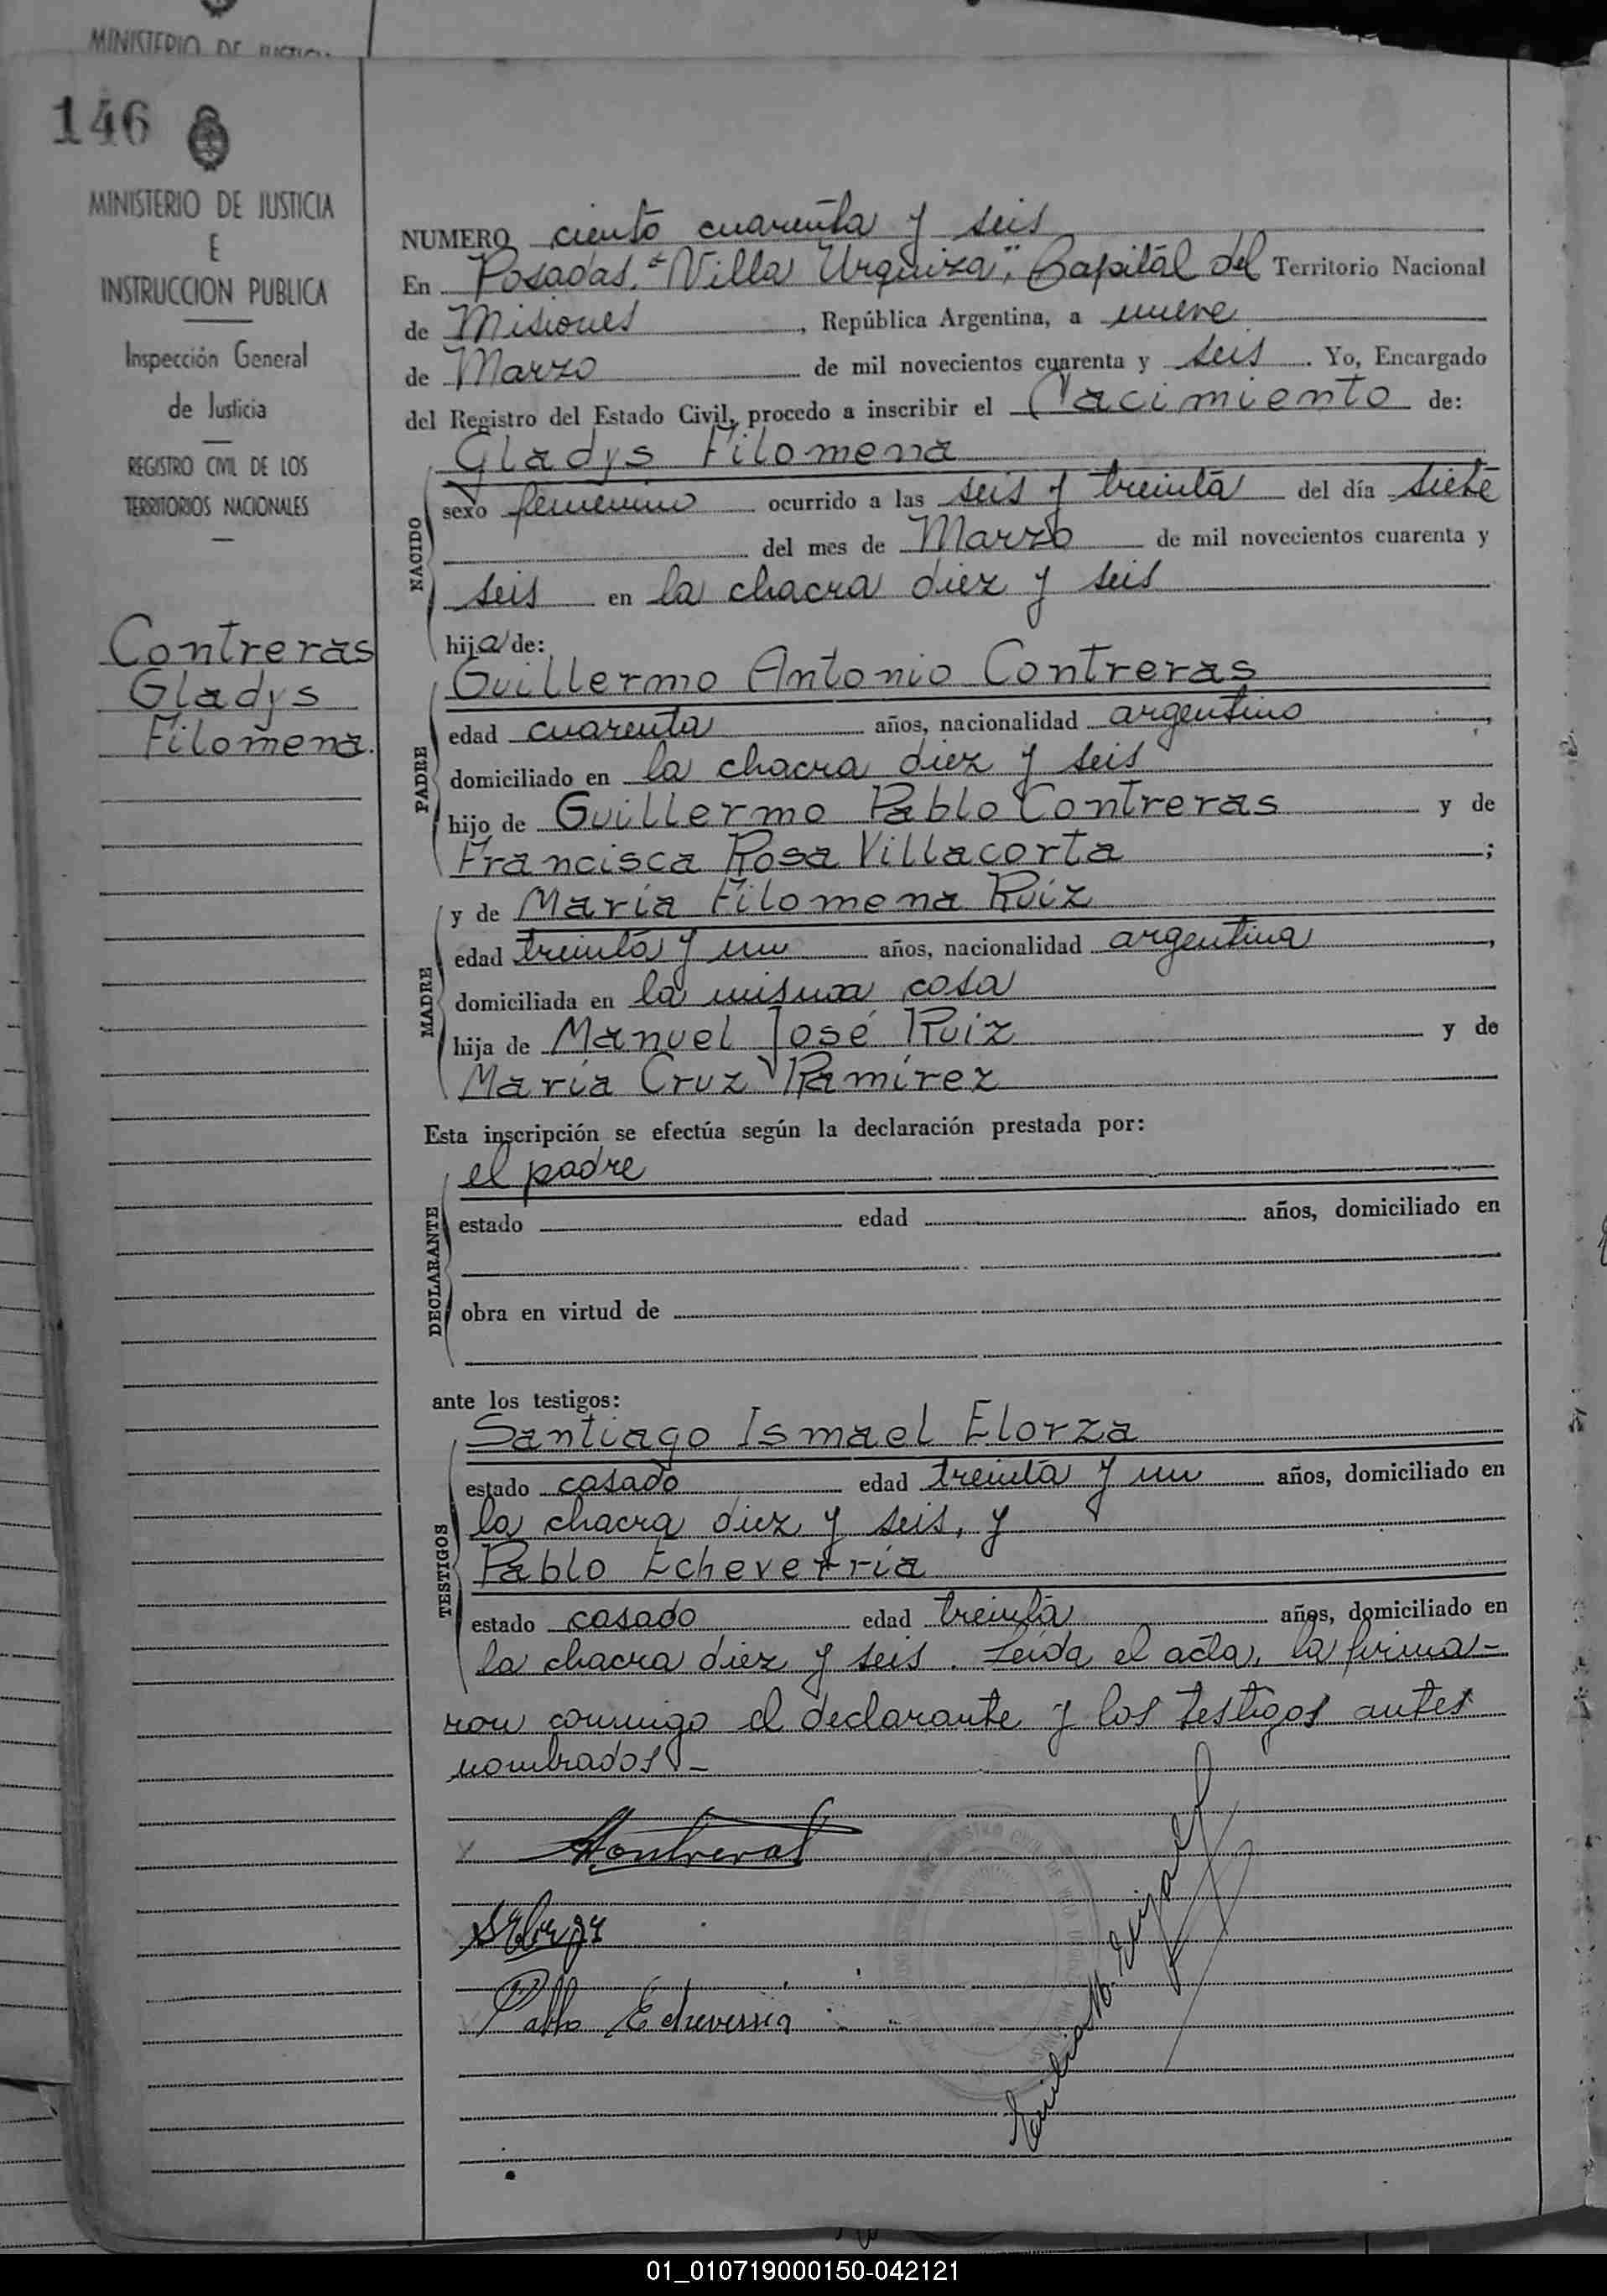 MINISTERIO DE JUSTICIA
146
MINISTERIO DE JUSTICIA
E
INSTRUCCION PUBLICA
Inspección General
de Justicia
REGISTRO CIVIL DE LOS
TERRITORIOS NACIONALES
Contreras
Gladys
Filomena.
NUMERO ciento cuarenta y seis
En Posadas, "Villa Urquiza", Capital del Territorio Nacional
de Misiones, República Argentina, a nueve
de Marzo de mil novecientos cuarenta y seis. Yo, Encargado
del Registro del Estado Civil, procedo a inscribir el Nacimiento de:
Gladys Filomena
NACIDO
sexo femenino ocurrido a las seis y treinta del día siete
del mes de Marzo de mil novecientos cuarenta y
seis en la chacra diez y seis
hija de:
Guillermo Antonio Contreras
PADRE
edad cuarenta años, nacionalidad argentino,
domiciliado en la chacra diez y seis
hijo de Guillermo Pablo Contreras y de
Francisca Rosa Villacorta;
y de María Filomena Ruiz
MADRE
edad treinta y un años, nacionalidad argentina,
domiciliada en la misma casa
hija de Manuel José Ruiz y de
María Cruz Ramírez
Esta inscripción se efectúa según la declaración prestada por:
el padre
DECLARANTE
estado edad años, domiciliado en
obra en virtud de
ante los testigos:
Santiago Ismael Elorza
TESTIGOS
estado casado edad treinta y un años, domiciliado en
la chacra diez y seis, y
Pablo Echeverría
estado casado edad treinta años, domiciliado en
la chacra diez y seis. Leída el acta, la firma-
ron conmigo el declarante y los testigos antes
nombrados.-
Contreras
SElorza
Pablo Echeverría
01_010719000150-042121